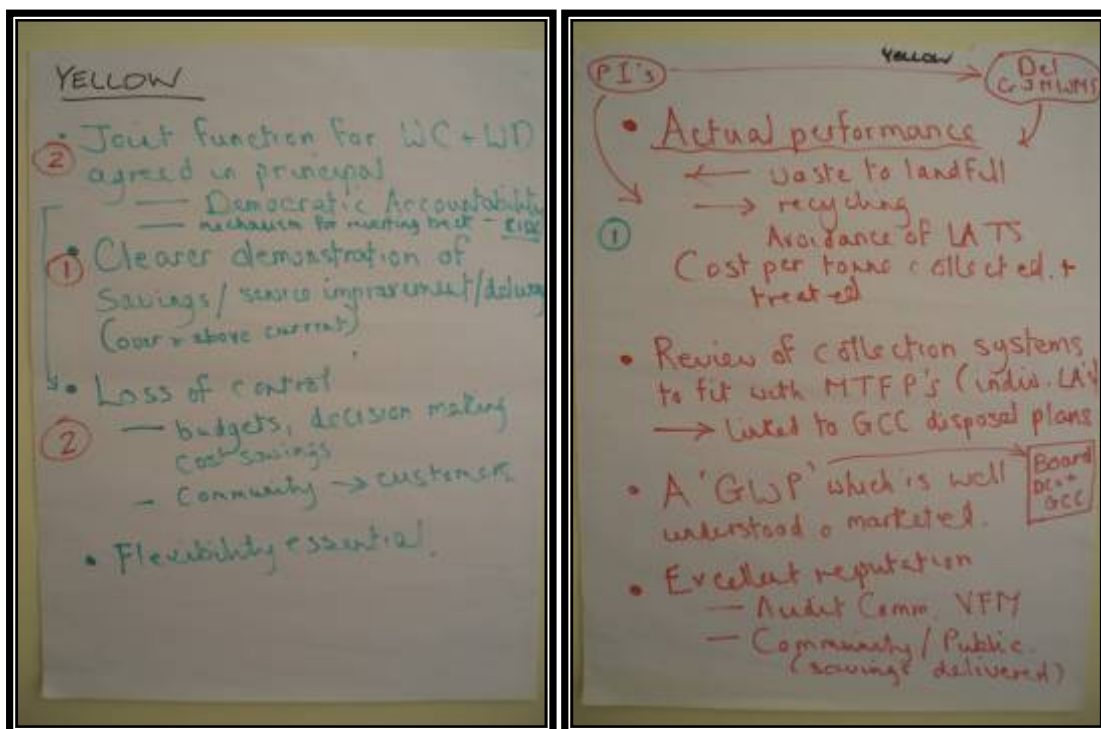 YELLOW
• Joint function for WC + WD
②
agreed in principal
— Democratic Accountability
— mechanism for back –
• Clearer demonstration of
①
savings / service improvement/delivery
(over + above current)
• Loss of control
② — budgets, decision making
cost savings
– Community → customers
• Flexibility essential.
YELLOW
PI's
Del
GJMWMS
• Actual performance
← waste to landfill
→ recycling
① Avoidance of LATS
Cost per tonne collected +
treated
• Review of collection systems
to fit with MTFP's (indiv. LA's)
→ Linked to GCC disposal plans
• A 'GWP' which is well
understood & marketed.
Board
DCs +
GCC
• Excellent reputation
— Audit Comm. VFM
— Community / Public.
(savings delivered)